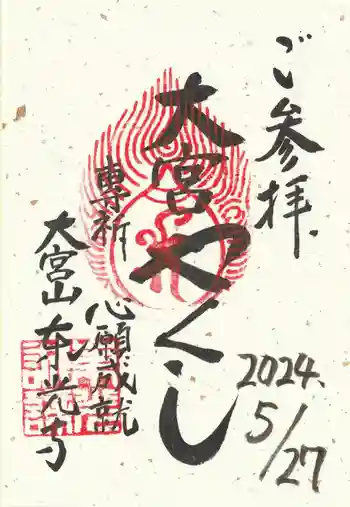 ご参拝
2024.
5/27
大宮やくし
専祈
心願成就
大宮山本光寺